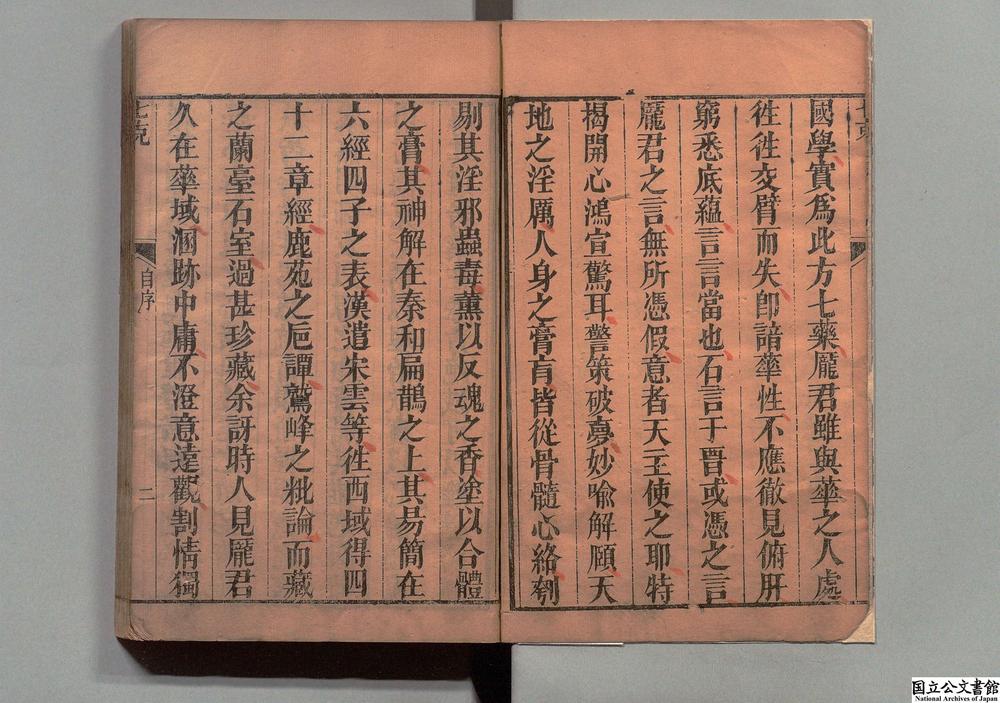 國學實爲此方七藥龐君雖與華之人處
徃徃交臂而失卽諳華性不應徹見俯肝
窮悉底蘊言言當也石言于晋或憑之言
龐君之言無所憑假意者天主使之耶特
揭開心鴻宣驚耳警策破夢妙喻解頤天
地之淫厲人身之膏肓皆從骨髓心絡刳
剔其淫邪蟲毒薰以反魂之香塗以合體
之膏其神解在秦和扁鵲之上其昜簡在
六經四子之表漢遣宋雲等徃西域得四
十二章經鹿苑之巵譚鷲峰之粃論而藏
之蘭臺石室過甚珍藏余訝時人見龐君
久在華域溷跡中庸不澄意達觀割情獨
七克
自序
二
国立公文書館
National Archives of Japan